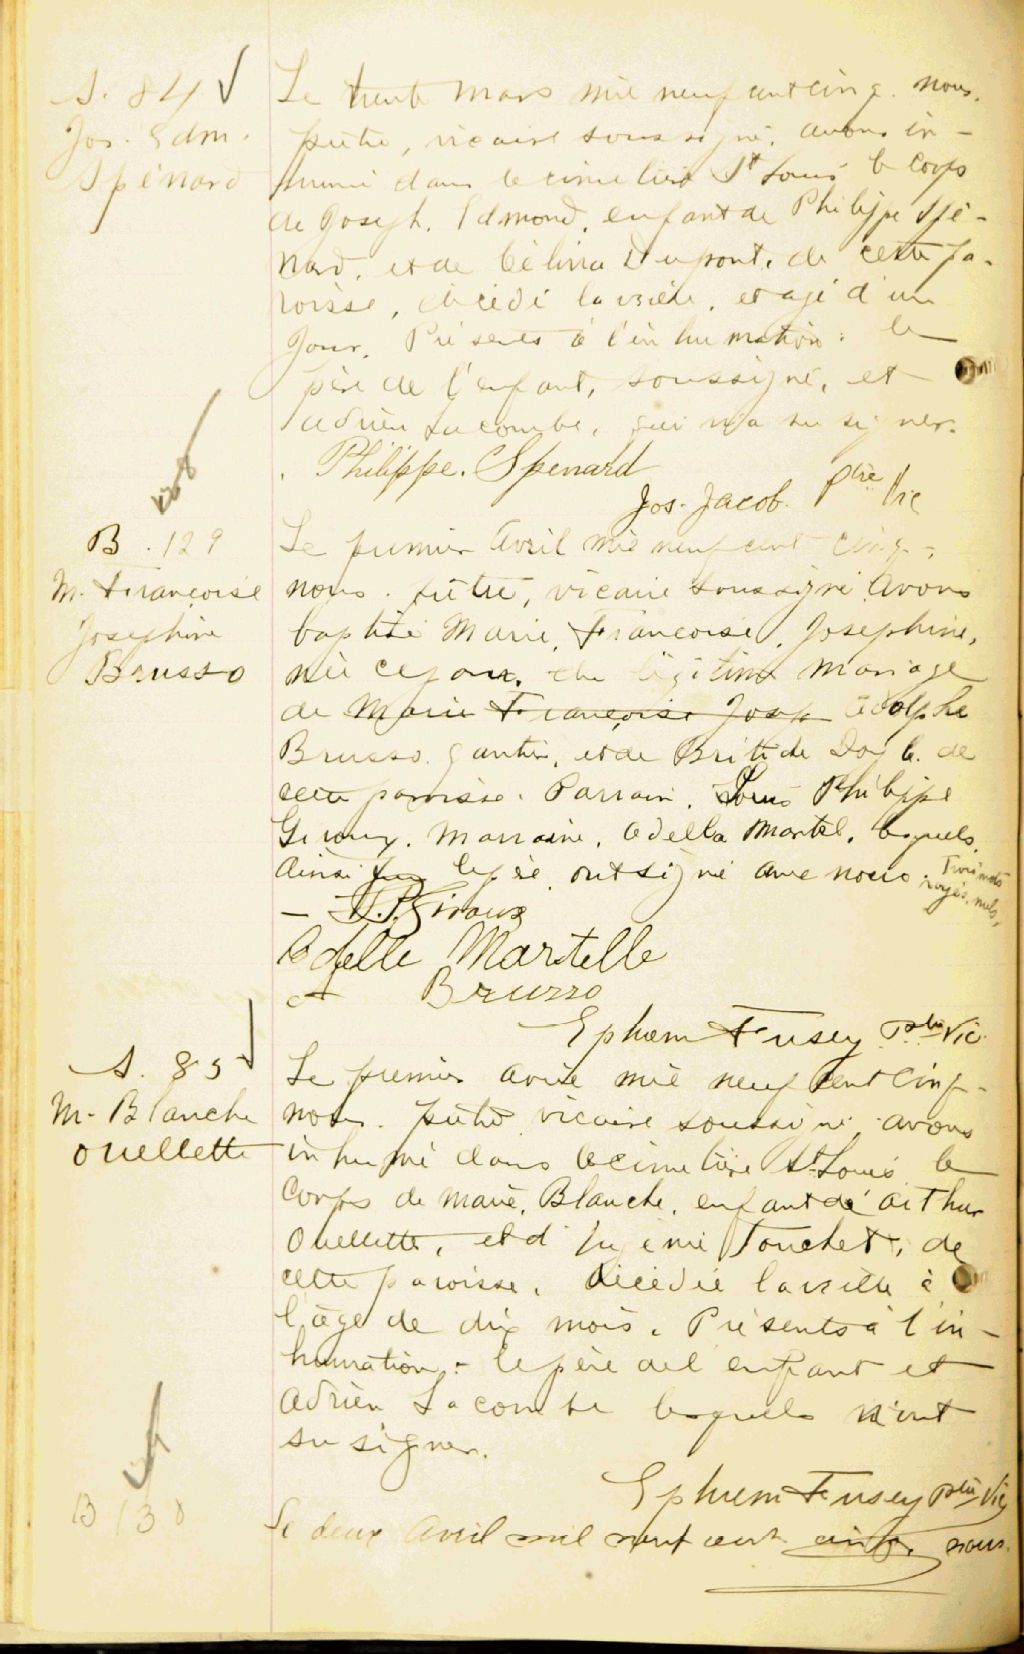 S. 84
Jos. Edm.
Spénard
Le trente Mars mil neuf cent cinq. nous,
prêtre, vicaire soussigné, avons in-
humé dans le cimetière St Louis le corps
de Joseph, Edmond, enfant de Philippe Spé-
nard, et de Célina Dupont, de cette pa-
roisse, décédé la veille, et agé d'un
Jour. Présents à l'inhumation: le
père de l'enfant, soussigné, et
Adrien Lacombe, qui n'a su signer.
Philippe. Spenard
Jos. Jacob. Ptre Vic
B. 129
M. Françoise
Josephine
Brusso
Le premier Avril mil neuf cent cinq,
nous. prêtre, vicaire soussigné avons
baptisé Marie, Francoise, Josephine,
née ce jour, du légitime mariage
de Marie Françoise Josep Adolphe
Brusso. gantier, et de Doyle. de
cette paroisse. Parrain, Louis Philippe
Giroux. Marraine, Adella Martel, lesquels,
ainsi que le père ont signé avec nous. Trois mots
rayés, nuls,
L. P. Giroux
Adelle Martelle
A Brusso
Ephrem Fusey Ptre Vic.
S. 85
M. Blanche
Ouellette
Le premier avril mil neuf cent cinq-
nous. prêtre vicaire soussigné, avons
inhumé dans le cimetière St Louis le
corps de Marie, Blanche, enfant de Arthur
Ouellette, et d' Eugénie Touchet, de
cette paroisse. décédée la veille à
l'âge de dix mois. Présents à l'in-
humation:- le père de l'enfant et
Adrien Lacombe lesquels n'ont
su signer.
Ephrem Fusey Ptre Vic
B 130
Le deux Avril mil neuf cent cinq, nous.